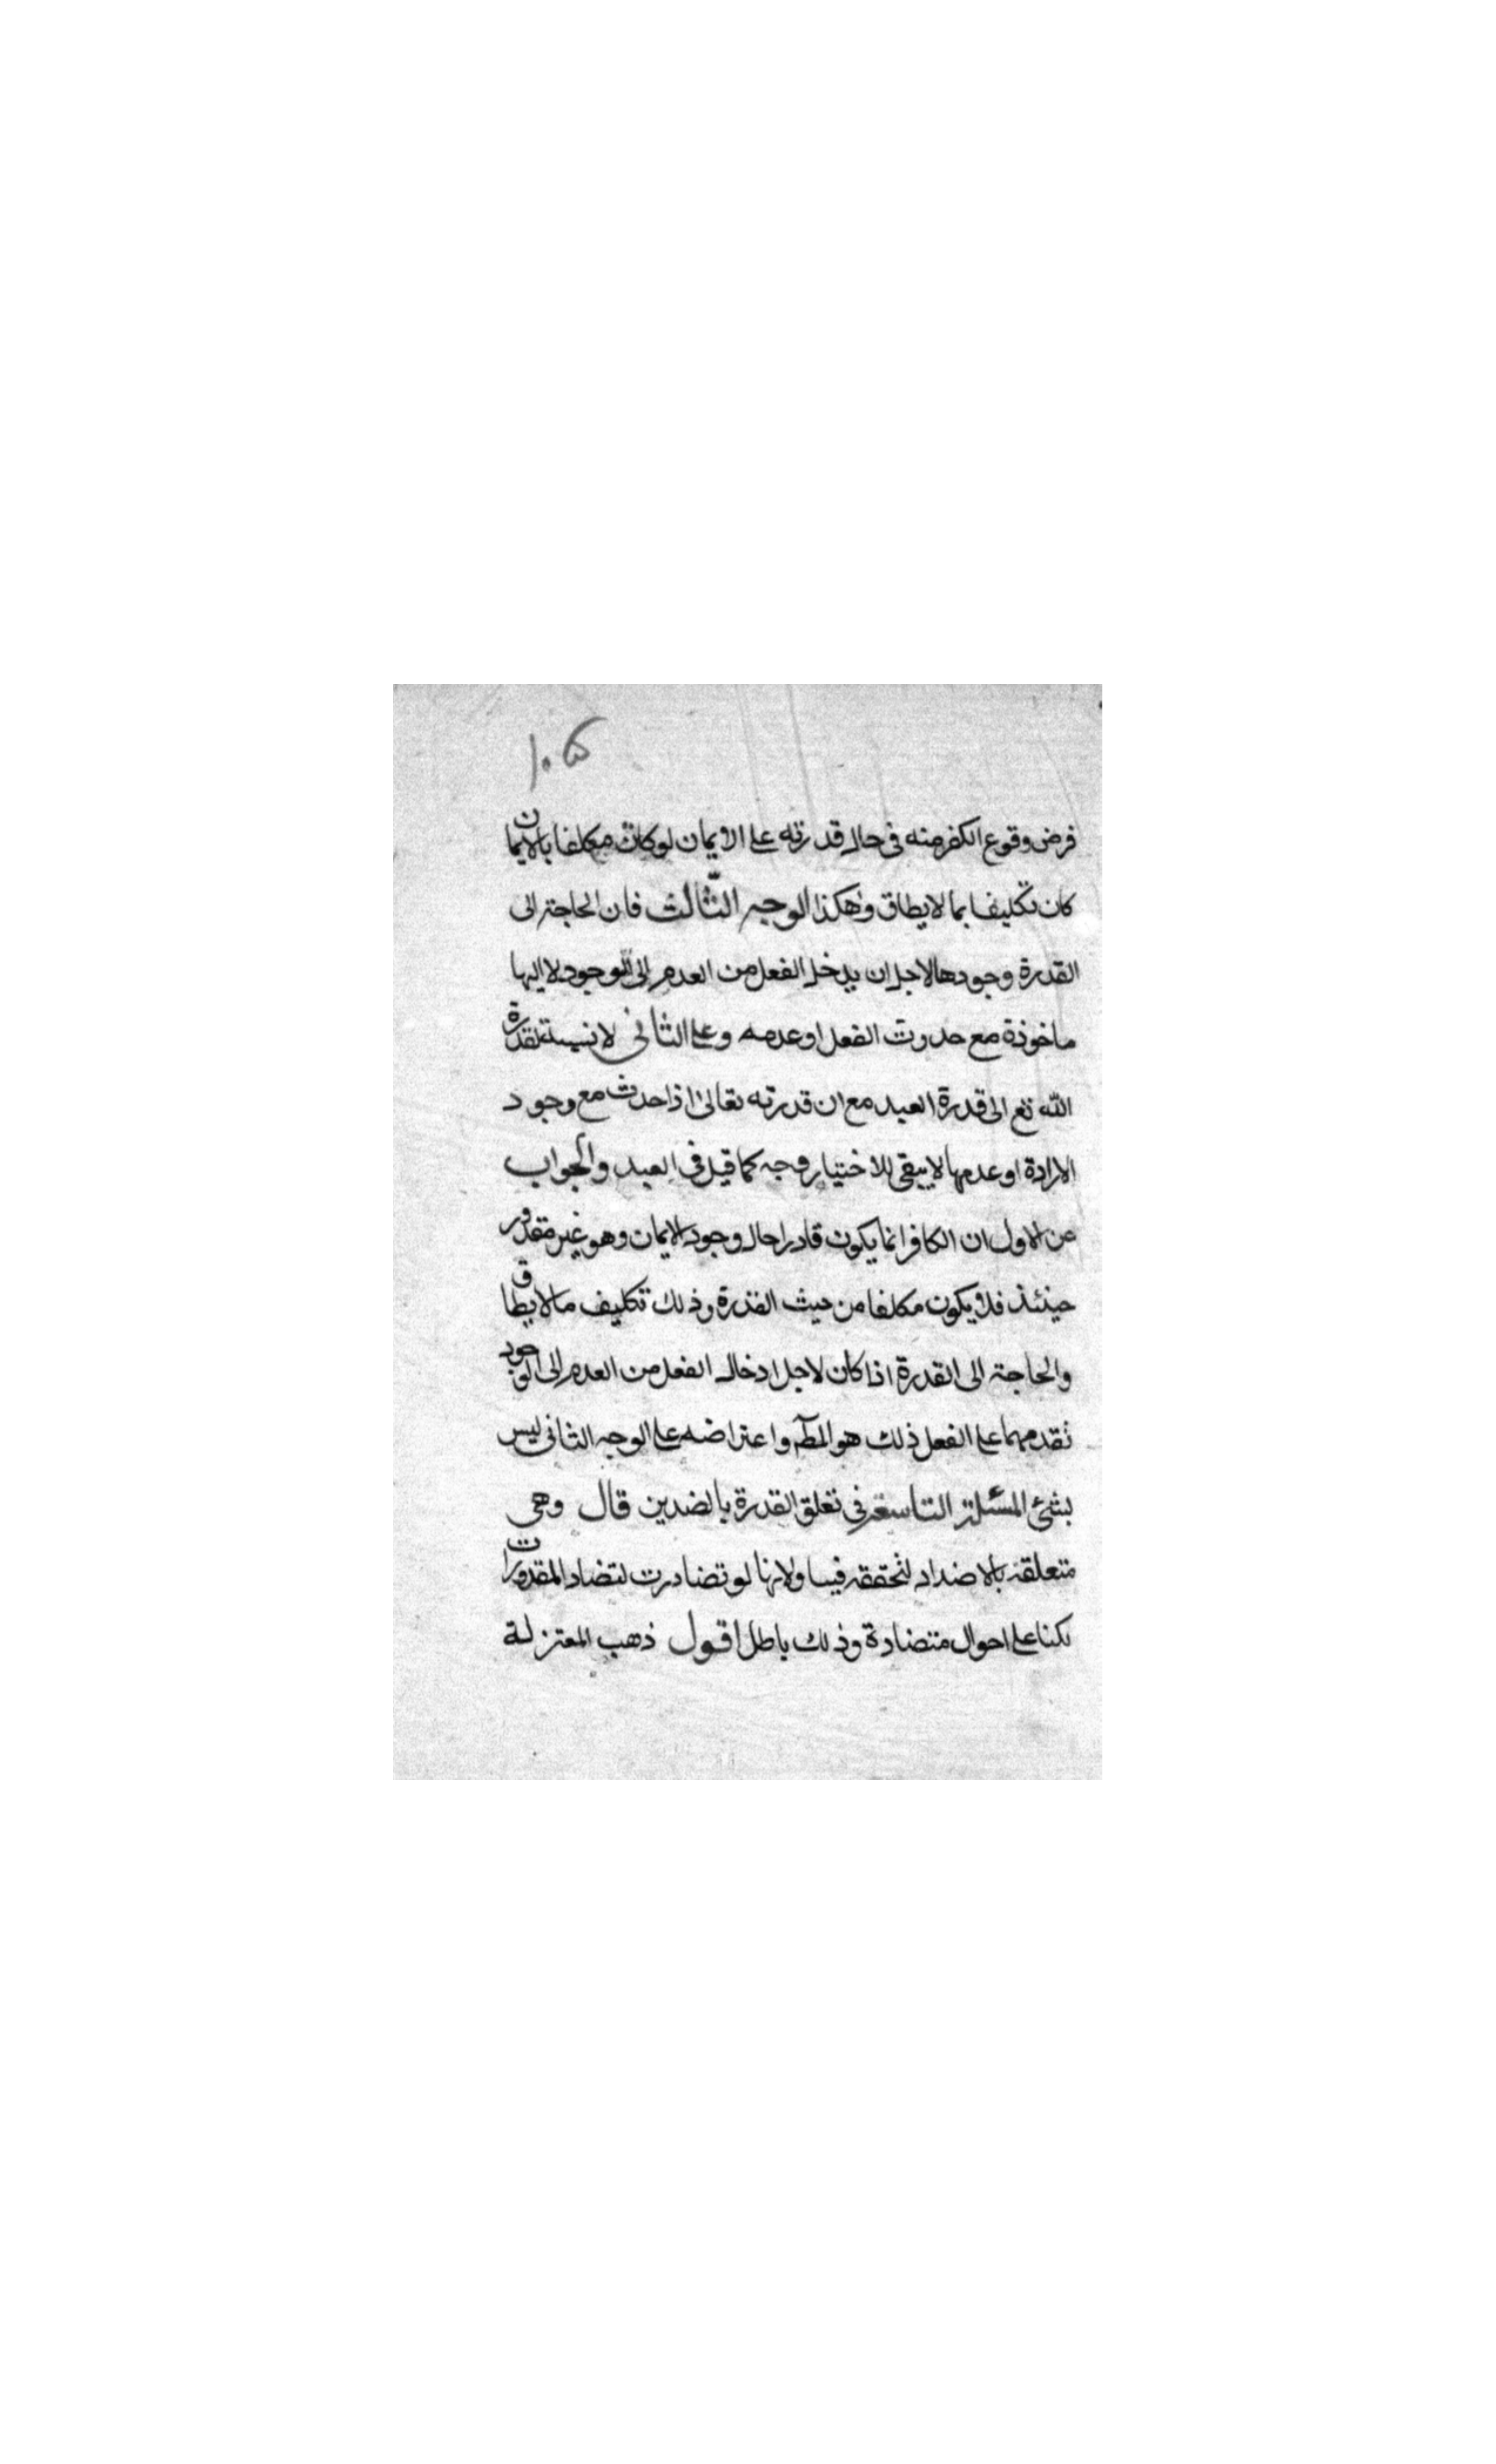 ١٠٥
فرض وقوع الكفر منه فى حال قدرته على الايمان لو كان مكلفا بالايمان
كان تكليفا بما لا يطاق وهكذا الوجه الثالث فان الحاجة الى
القدرة وجودها لاجل ان يدخل الفعل من العدم الى الوجود لا اليها
ماخوذة مع حدوث الفعل او عدمه وعلى الثانى لا نسبة لقدرة
الله تع الى قدرة العبد مع ان قدرته تعالى اذا حدث مع وجود
الارادة او عدمها لا يبقى للاختيار وجه كما قيل فى العبد والجواب
عن الاول ان الكافر انما يكون قادرا حال وجود الايمان وهو غير مقدور
حينئذ فلا يكون مكلفا من حيث القدرة وذلك تكليف ما لا يطاق
والحاجة الى القدرة اذا كان لاجل ادخال الفعل من العدم الى الوجود
تقدمهما على الفعل ذلك هو المط واعتراضه على الوجه الثانى ليس
بشئ المسئلة التاسعة فى تعلق القدرة بالضدين قال وهى
متعلقة بالاضداد لتحققه فينا ولانها لو تضادت لتضاد المقدورات
لكنا على احوال متضادة وذلك باطل اقول ذهب المعتزلة